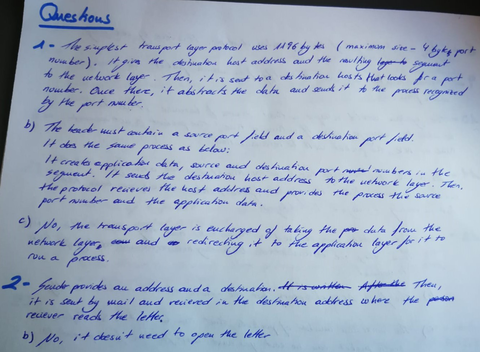 Questions
1- The simplest transport layer protocol uses 1196 bytes ( maximum size - 4 bytes port
number). It give the destination host address and the resulting segment
to the network layer. Then, it is sent to a destination hosts that looks for a port
number. Once there, it abstracts the data and sends it to the process recognized
by the port number.
b) The header must contain a source port field and a destination port field.
It does the same process as below:
It creates application data, source and destination port numbers in the
segment. It sends the destination host address to the network layer. Then,
the protocol recieves the host address and provides the process the source
port number and the application data.
c) No, the transport layer is encharged of taking the data from the
network layer, and redirecting it to the application layer for it to
run a process.
2- Sender provides an address and a destination. Then,
it is sent by mail and recieved in the destination address where the
reciever reads the letter.
b) No, it doesn't need to open the letter